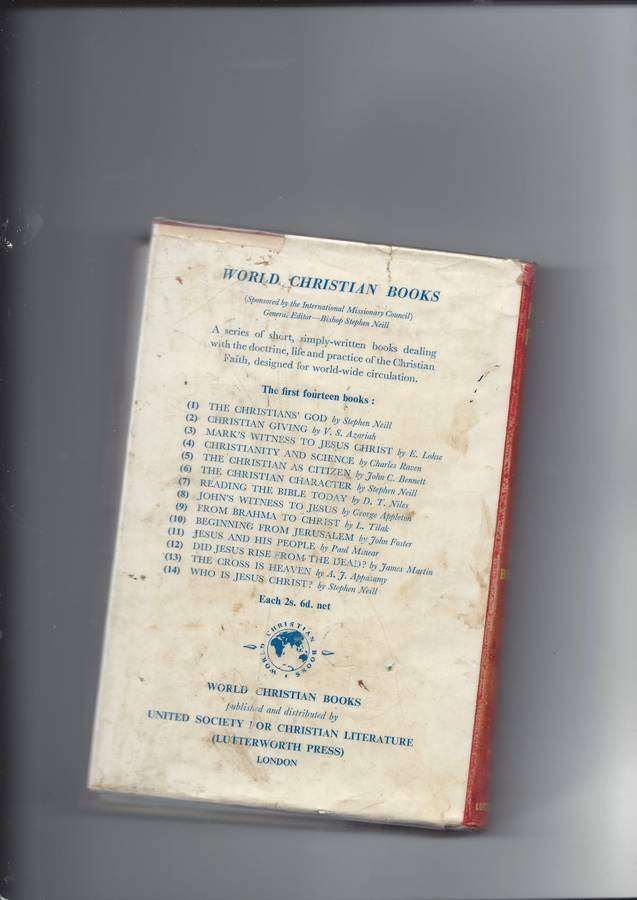 WORLD CHRISTIAN BOOKS
(Sponsored by the International Missionary Council)
General Editor—Bishop Stephen Neill
A series of short, simply-written books dealing
with the doctrine, life and practice of the Christian
Faith, designed for world-wide circulation.
The first fourteen books :
(1) THE CHRISTIANS' GOD by Stephen Neill
(2) CHRISTIAN GIVING by V. S. Azariah
(3) MARK'S WITNESS TO JESUS CHRIST by E. Lohse
(4) CHRISTIANITY AND SCIENCE by Charles Raven
(5) THE CHRISTIAN AS CITIZEN by John C. Bennett
(6) THE CHRISTIAN CHARACTER by Stephen Neill
(7) READING THE BIBLE TODAY by D. T. Niles
(8) JOHN'S WITNESS TO JESUS by George Appleton
(9) FROM BRAHMA TO CHRIST by L. Tilak
(10) BEGINNING FROM JERUSALEM by John Foster
(11) JESUS AND HIS PEOPLE by Paul Minear
(12) DID JESUS RISE FROM THE DEAD? by James Martin
(13) THE CROSS IS HEAVEN by A. J. Appasamy
(14) WHO IS JESUS CHRIST? by Stephen Neill
Each 2s. 6d. net
WORLD CHRISTIAN BOOKS
WORLD CHRISTIAN BOOKS
published and distributed by
UNITED SOCIETY FOR CHRISTIAN LITERATURE
(LUTTERWORTH PRESS)
LONDON